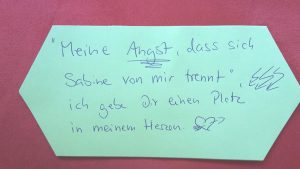 "Meine Angst, dass sich
Sabine von mir trennt",
ich gebe Dir einen Platz
in meinem Herzen